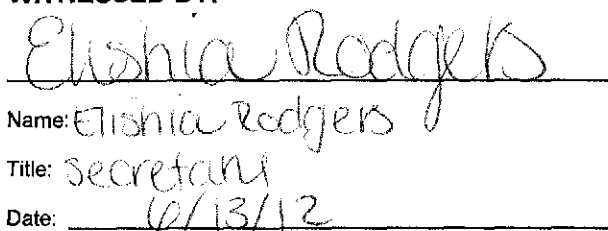 WITNESSED BY:
Elishia Rodgers
Name: Elishia Rodgers
Title: Secretary
Date: 6/13/12